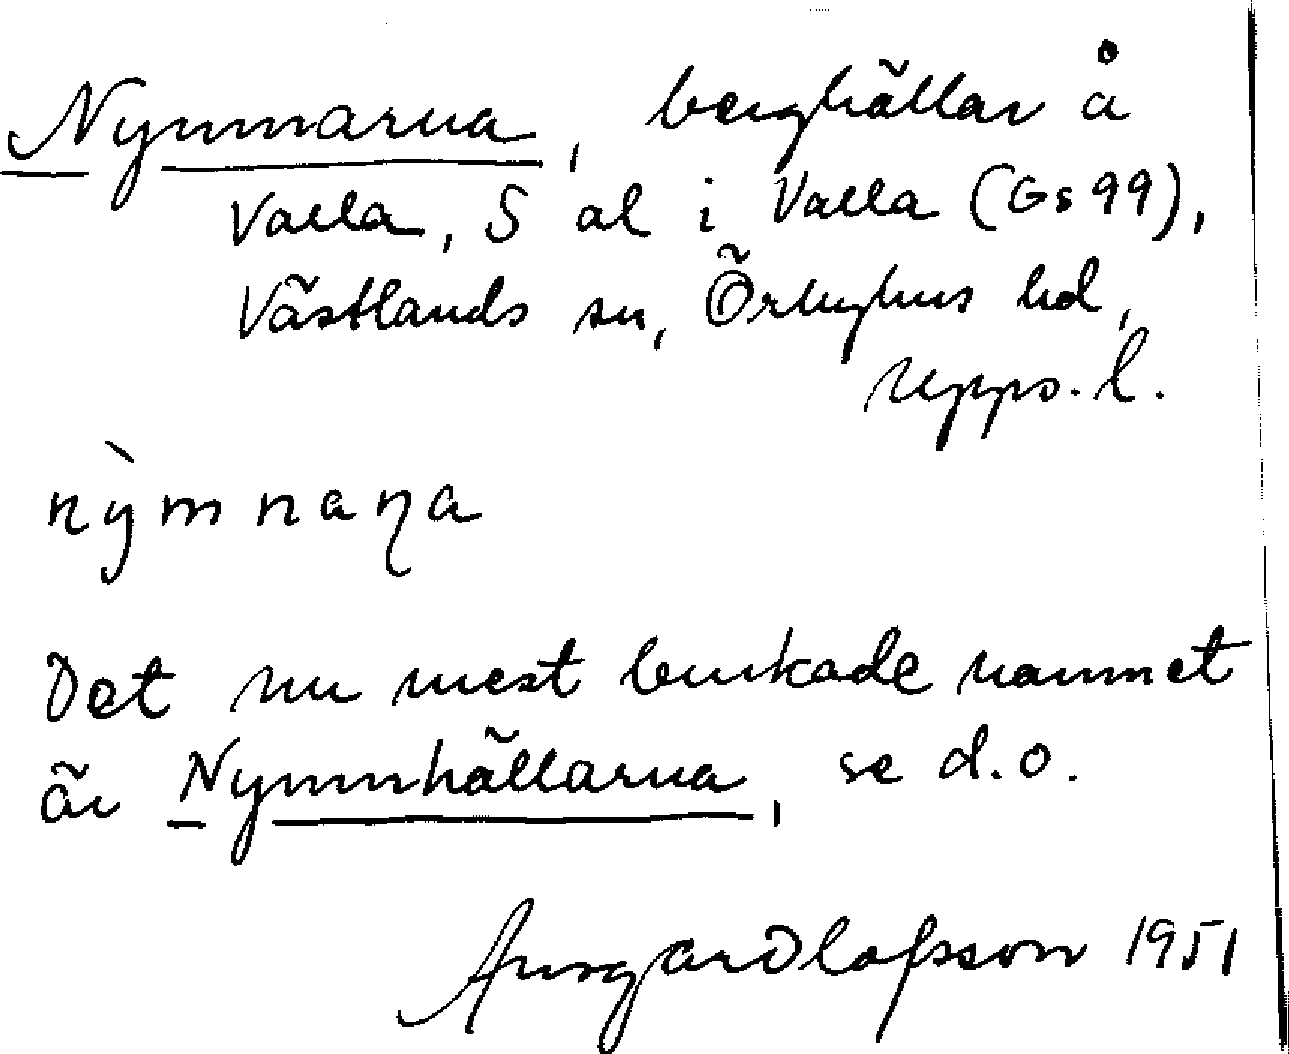 Nymnarna, berghällar å
Valla, S al i Valla (Gs 99),
Västlands sn, Örbyhus hd,
Upps. l.
ny̌̀mnaɳa
Det nu mest brukade namnet
är Nymnhällarna, se d.o.
Ansgar Olofsson 1951